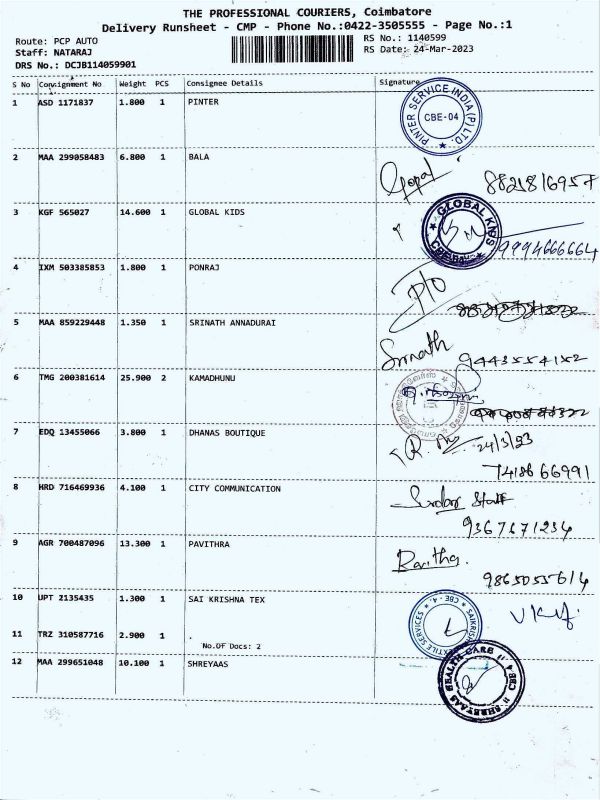 THE PROFESSIONAL COURIERS, Coimbatore
Delivery Runsheet - CMP - Phone No.:0422-3505555 - Page No.:1
Route: PCP AUTO
Staff: NATARAJ
DRS No.: DCJB114059901
RS No.: 1140599
RS Date: 24-Mar-2023
S No Consignment No Weight PCS Consignee Details Signature
1 ASD 1171837 1.800 1 PINTER
PINTER SERVICE INDIA (P) LTD. CBE-04
2 MAA 299058483 6.800 1 BALA
Gopal 8821816957
3 KGF 565027 14.600 1 GLOBAL KIDS
GLOBAL KIDS
9994666664
4 IXM 503385853 1.800 1 PONRAJ
P/O
5 MAA 859229448 1.350 1 SRINATH ANNADURAI
Srinath 9443554152
6 TMG 200381614 25.900 2 KAMADHUNU
7 EDQ 13455066 3.800 1 DHANAS BOUTIQUE
24/3/23
7418666991
8 HRD 716469936 4.100 1 CITY COMMUNICATION
Staff
9367671234
9 AGR 700487096 13.300 1 PAVITHRA
9865055614
10 UPT 2135435 1.300 1 SAI KRISHNA TEX
SAIKRISHNA TEXTILE SERVICES CBE - 4.
11 TRZ 310587716 2.900 1 .
No.Of Docs: 2
12 MAA 299651048 10.100 1 SHREYAAS
SHREYAAS HEALTH CARE CBE-4